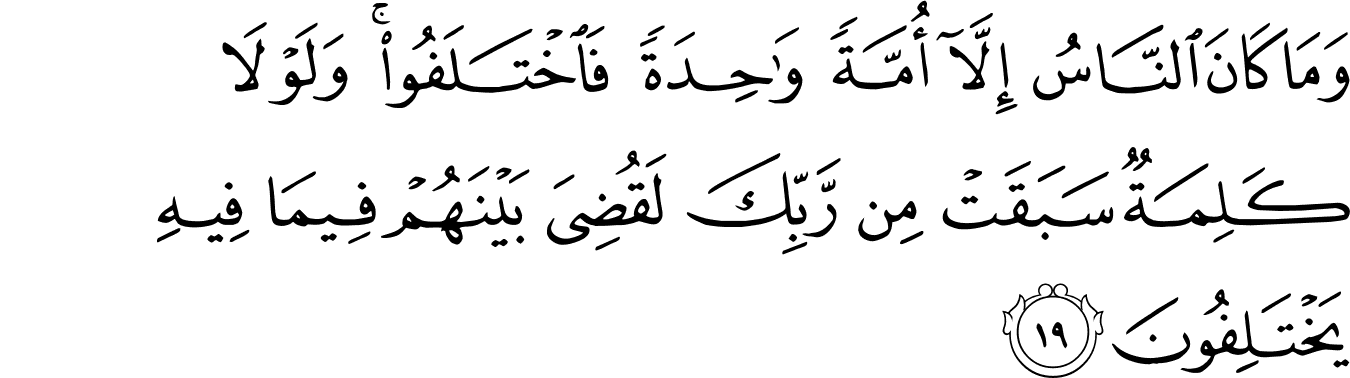 وَمَا كَانَ ٱلنَّاسُ إِلَّآ أُمَّةً وَٰحِدَةً فَٱخْتَلَفُوا۟ ۚ وَلَوْلَا
كَلِمَةٌ سَبَقَتْ مِن رَّبِّكَ لَقُضِىَ بَيْنَهُمْ فِيمَا فِيهِ
يَخْتَلِفُونَ ١٩